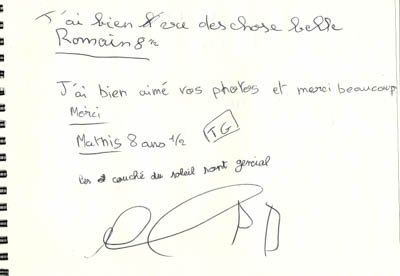 J'ai bien vue des chose belle
Romain 8
J'ai bien aimé vos photos et merci beaucoup
Merci
Mathis 8 ans 1/2
TG
les couché du soleil sont genial